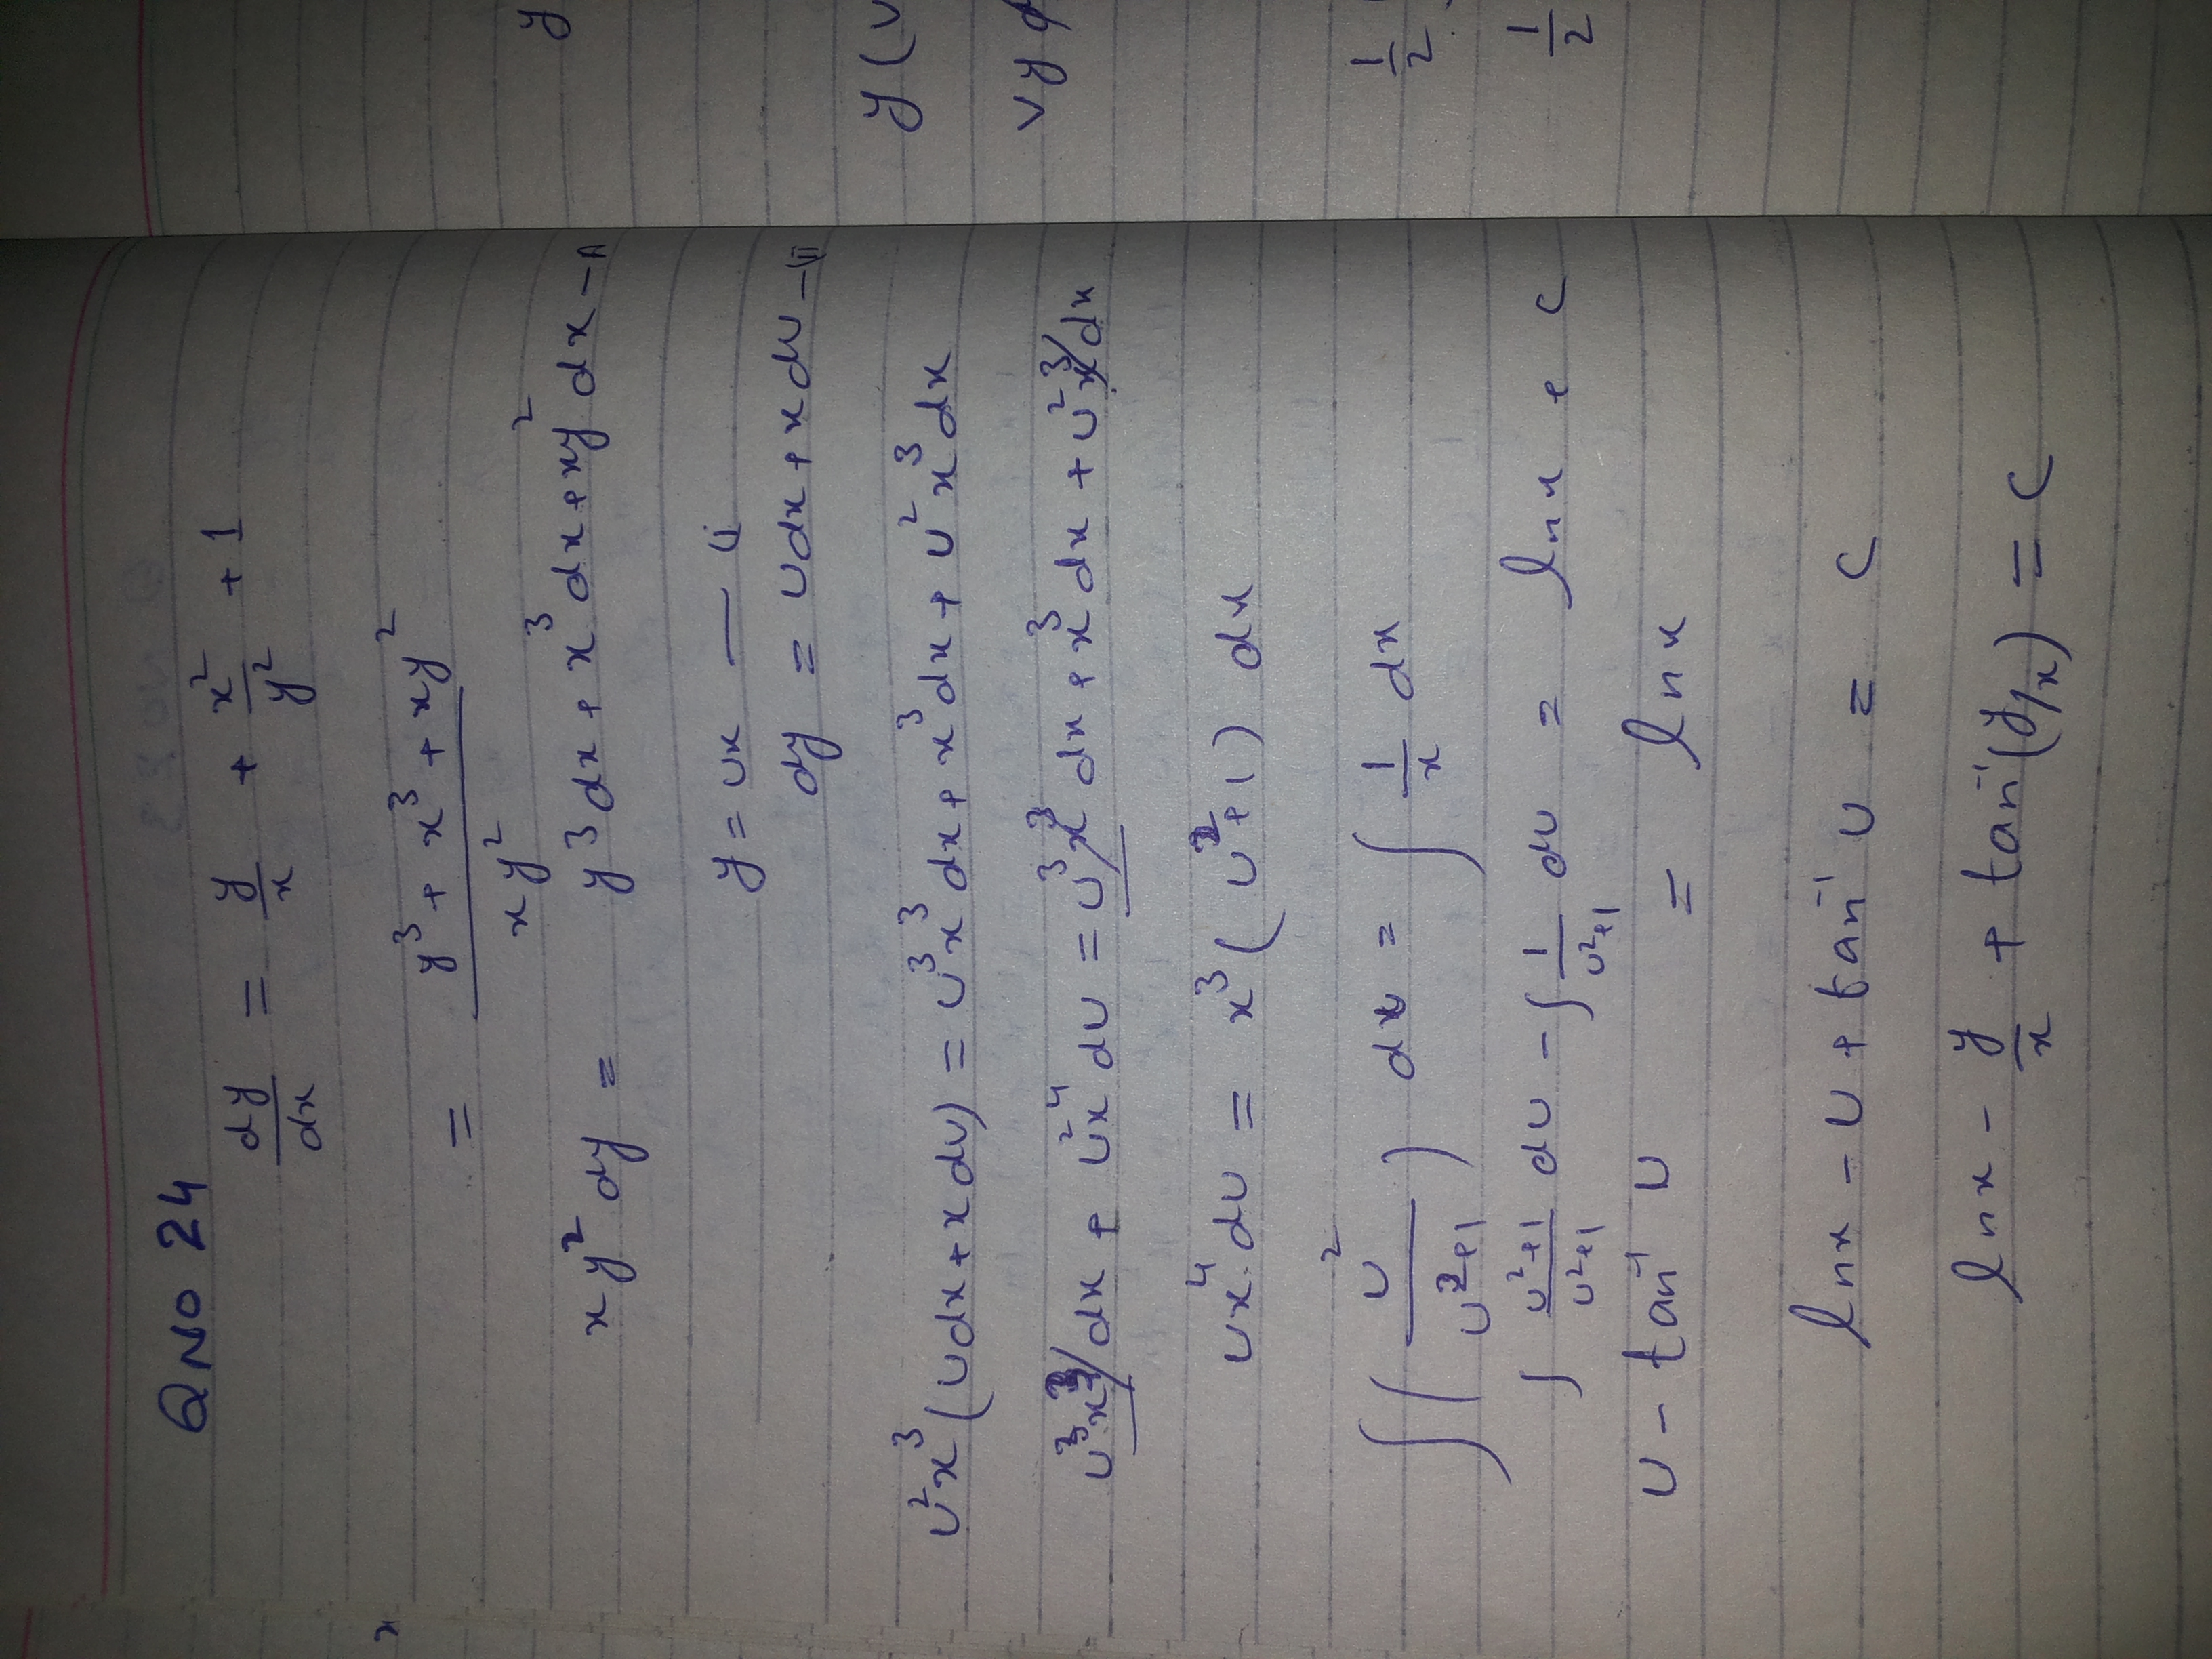 Q NO 24
dy/dx = y/x + x²/y² + 1
= (y³ + x³ + xy²)/(xy²)
xy² dy = y³ dx + x³ dx + xy² dx - A
y = ux — (i
dy = u dx + x du - (ii
u²x³ (u dx + x du) = u³x³ dx + x³ dx + u²x³ dx
u³x³ dx + u²x⁴ du = u³x³ dx + x³ dx + u²x³ dx
ux⁴ du = x³ (u² + 1) dx
∫ (u²/(u²+1)) du = ∫ 1/x dx
∫ (u²+1)/(u²+1) du - ∫ 1/(u²+1) du = ln x + c
u - tan⁻¹ u = ln x
ln x - u + tan⁻¹ u = c
ln x - y/x + tan⁻¹ (y/x) = c
x
y
y (u
vy
1/2
1/2